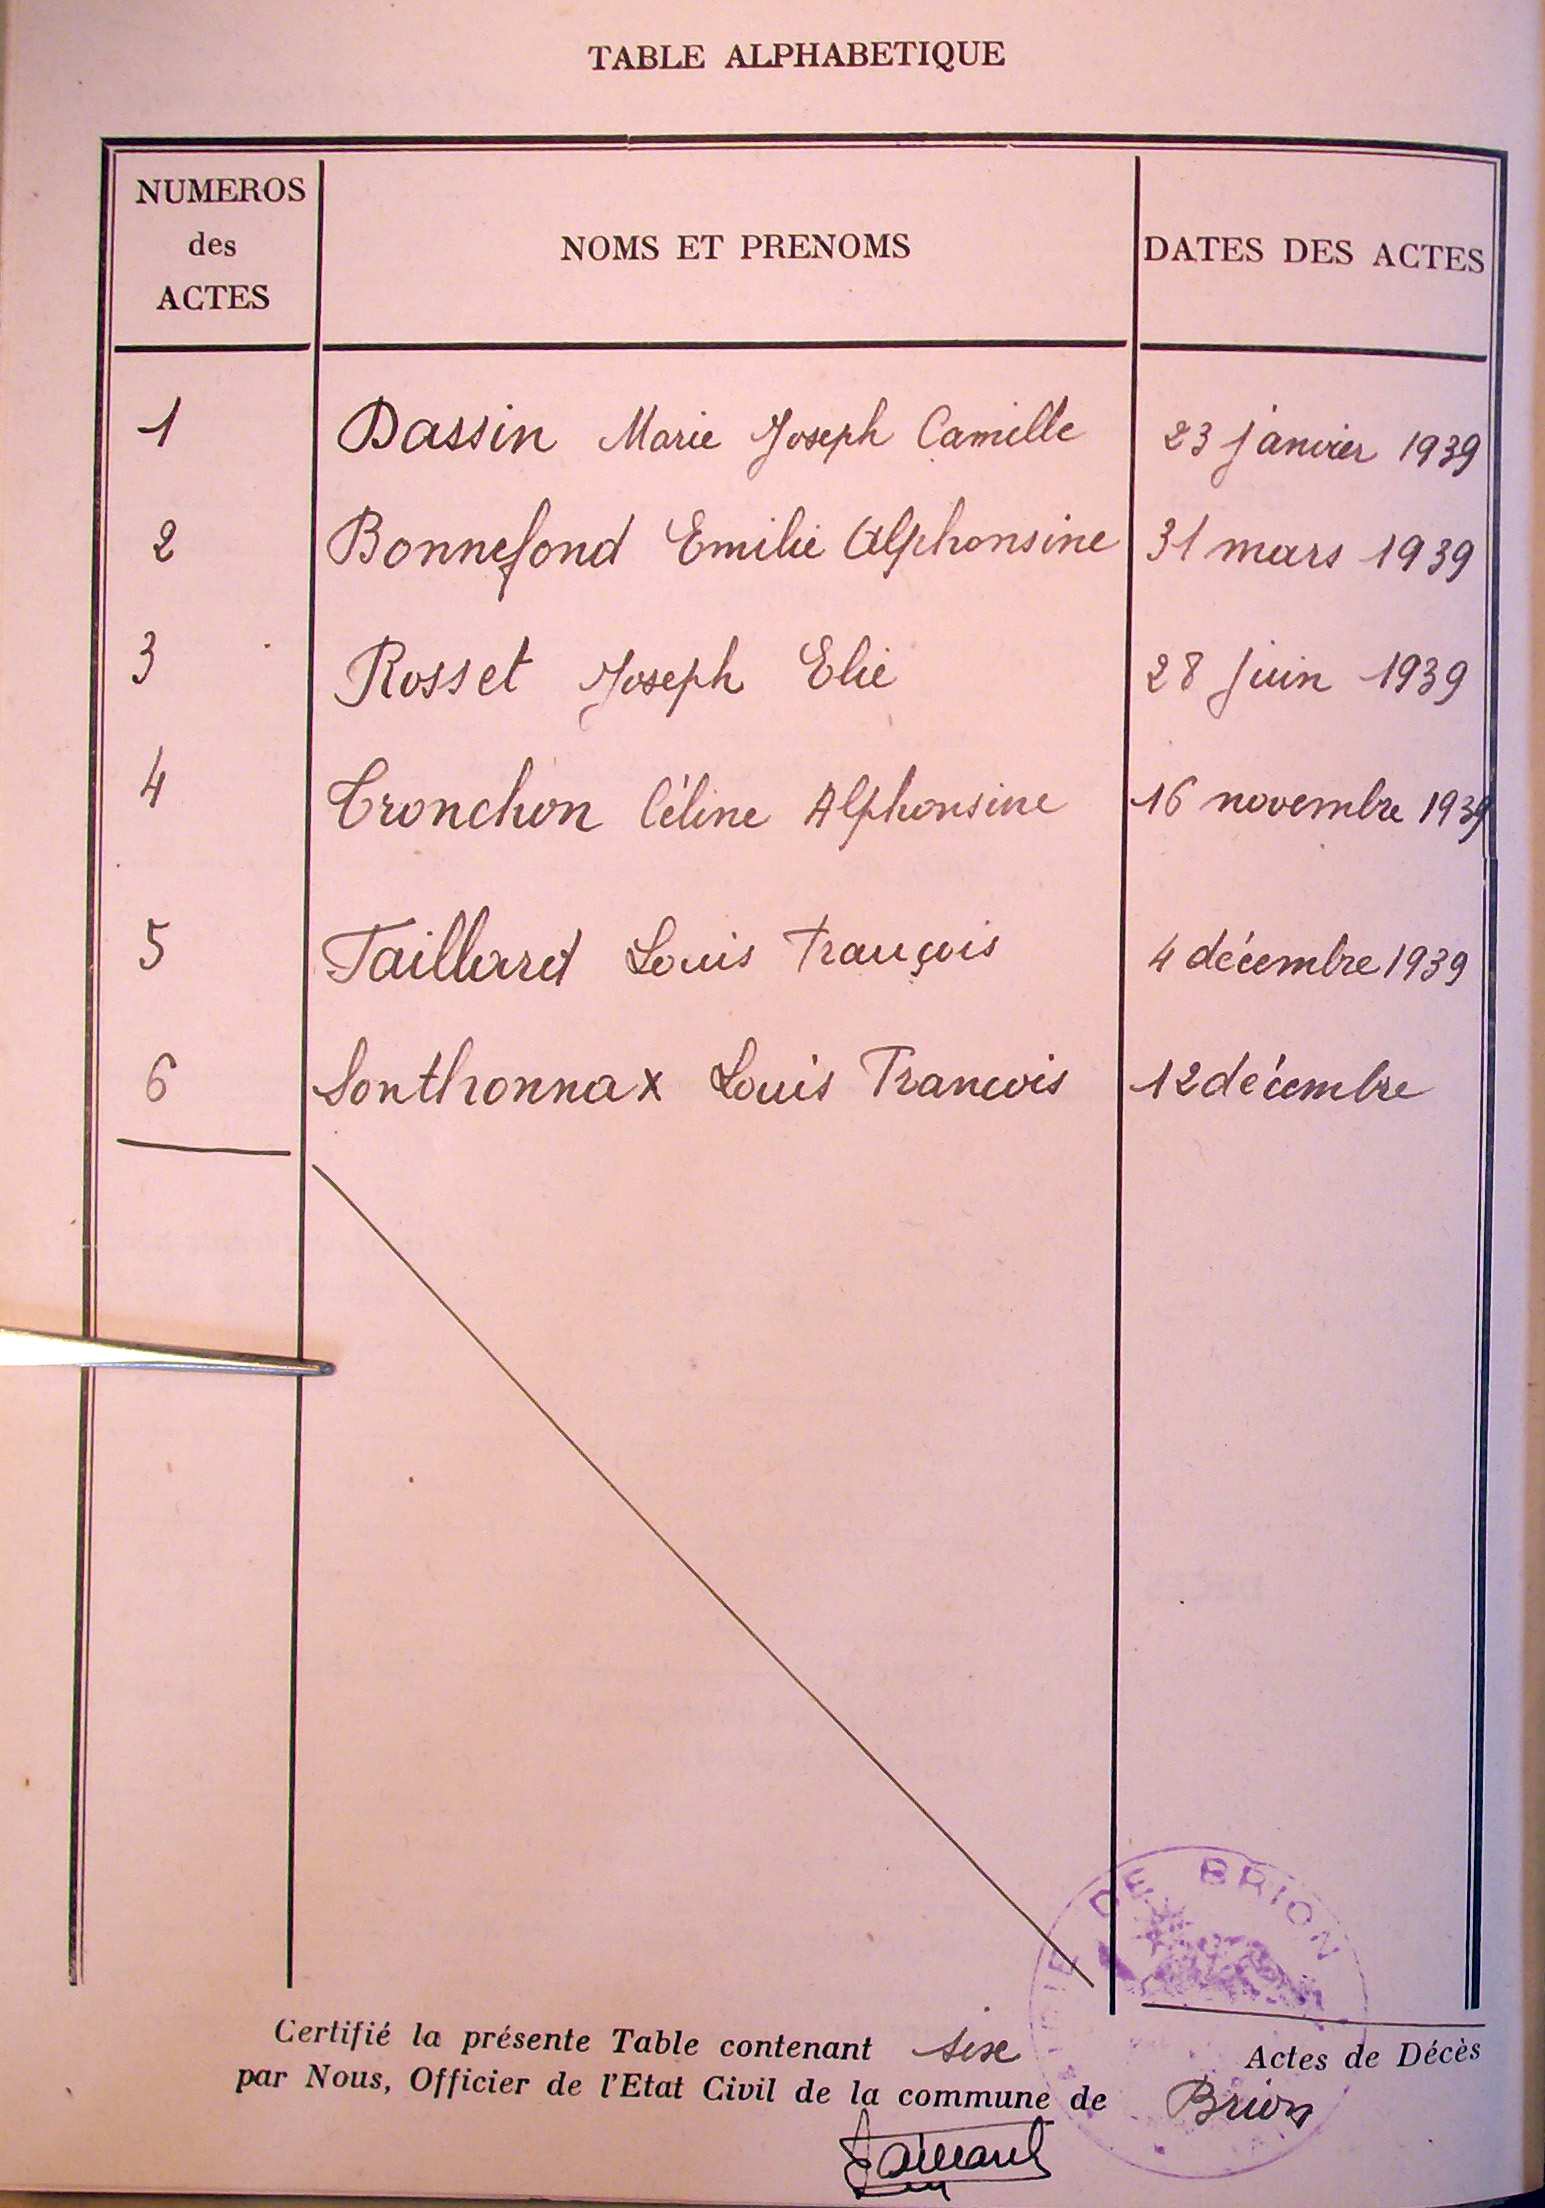 TABLE ALPHABETIQUE
NUMEROS
des
ACTES
NOMS ET PRENOMS
DATES DES ACTES
1 Dassin Marie Joseph Camille 23 janvier 1939
2 Bonnefond Emilie Alphonsine 31 mars 1939
3 Rosset Joseph Elie 28 juin 1939
4 Tronchon Céline Alphonsine 16 novembre 1939
5 Taillard Louis François 4 décembre 1939
6 Sonthonnax Louis Francois 12 décembre
DE BRION
Certifié la présente Table contenant six Actes de Décès
par Nous, Officier de l'Etat Civil de la commune de Brion